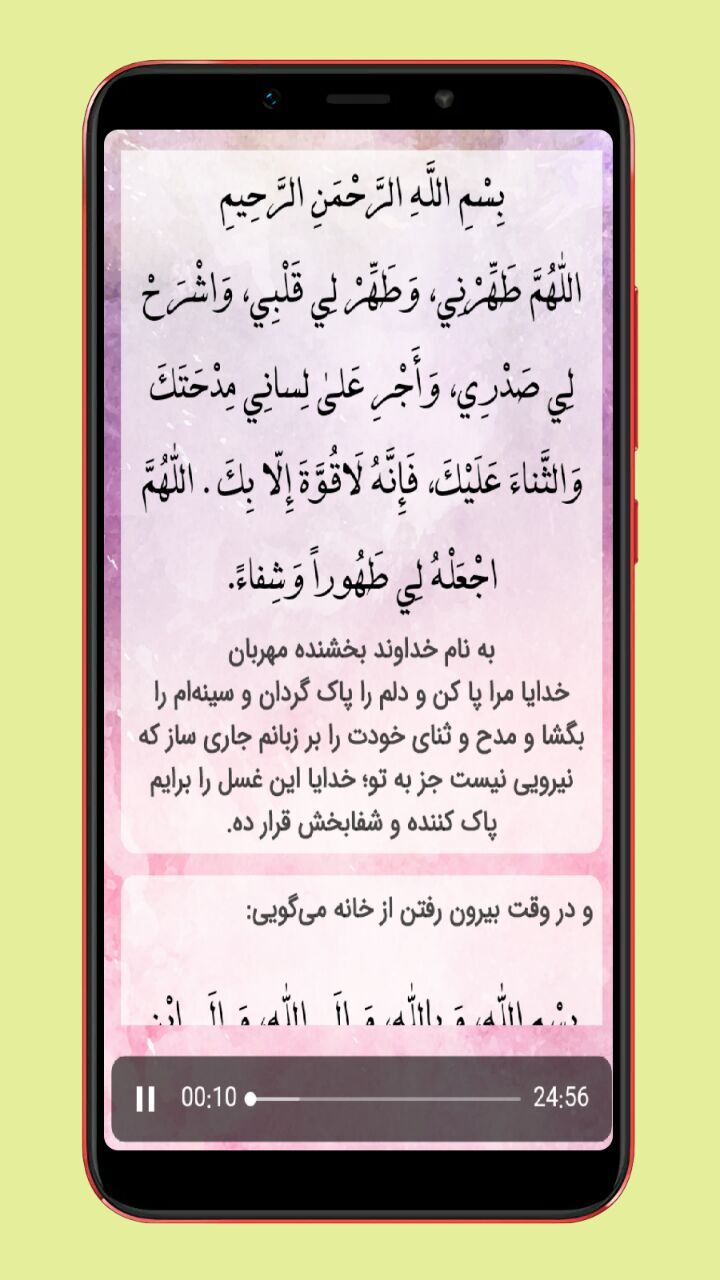 بِسْمِ اللَّهِ الرَّحْمَنِ الرَّحِيمِ
اللّٰهُمَّ طَهِّرْنِي، وَطَهِّرْ لِي قَلْبِي، وَاشْرَحْ
لِي صَدْرِي، وَأَجْرِ عَلىٰ لِسانِي مِدْحَتَكَ
وَالثَّناءَ عَلَيْكَ، فَإِنَّهُ لَاقُوَّةَ إِلّا بِكَ . اللّٰهُمَّ
اجْعَلْهُ لِي طَهُوراً وَشِفاءً.
به نام خداوند بخشنده مهربان
خدایا مرا پا کن و دلم را پاک گردان و سینه‌ام را
بگشا و مدح و ثنای خودت را بر زبانم جاری ساز که
نیرویی نیست جز به تو؛ خدایا این غسل را برایم
پاک کننده و شفابخش قرار ده.
و در وقت بیرون رفتن از خانه می‌گویی:
بِسْمِ اللّٰهِ، وَ بِاللّٰهِ، وَ إِلَى اللّٰهِ، وَ إِلَى ابْنِ
00:10 24:56